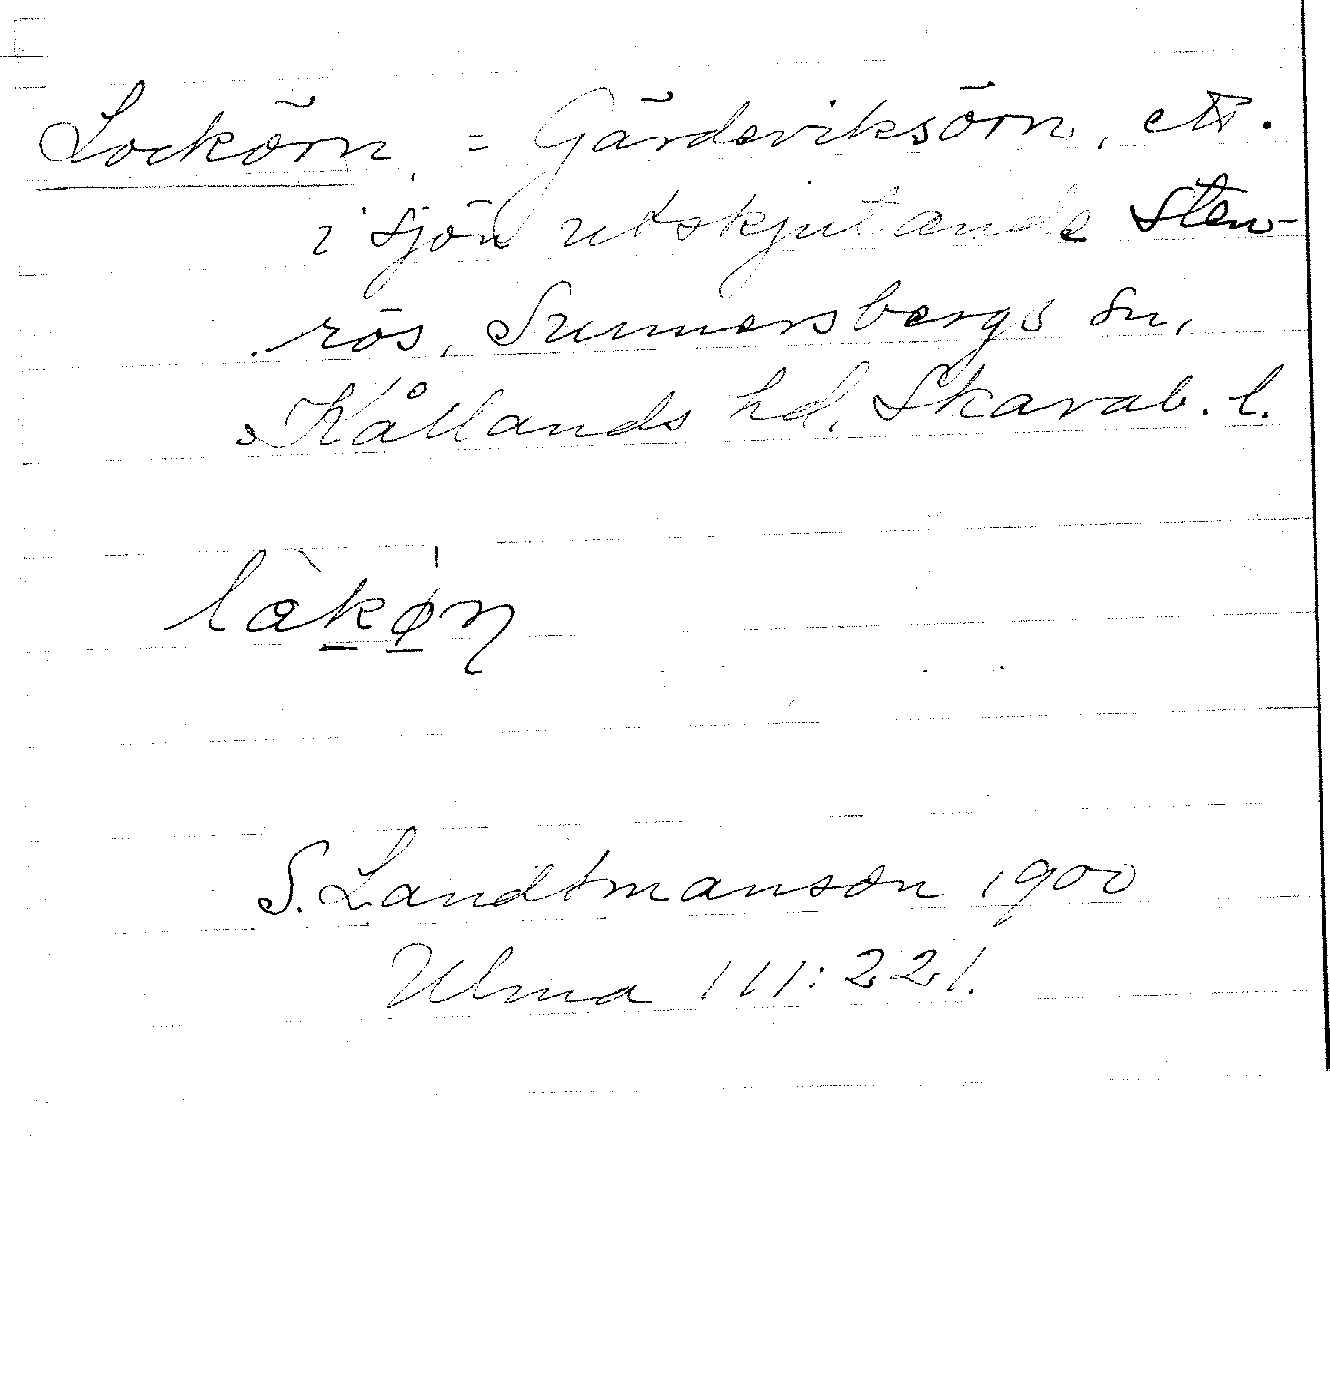 Lockörn, = Gärdsviksörn, ett
i sjön utskjutande sten-
rös, Sunnersbergs sn,
Kållands hd, Skarab. l.
S. Landtmanson 1900
Ulma 111:221.